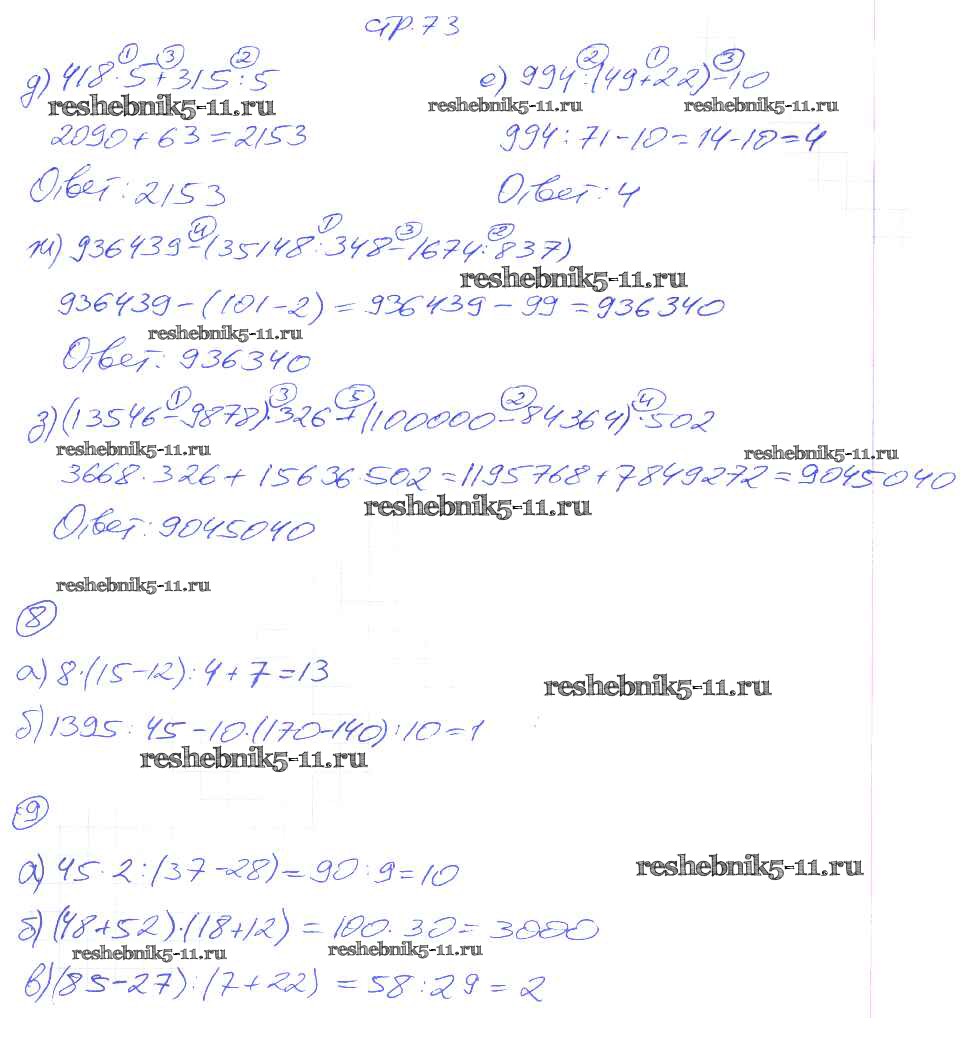 стр. 73
д) 418·5+315:5 е) 994:(49+22)-10
① ③ ② ② ① ③
reshebnik5-11.ru reshebnik5-11.ru reshebnik5-11.ru
2090+63=2153 994:71-10=14-10=4
Ответ: 2153 Ответ: 4
④ 1 ③ ②
ж) 936439-(35148:348-1674:837)
reshebnik5-11.ru
936439-(101-2)=936439-99=936340
reshebnik5-11.ru
Ответ: 936340
① ③ ⑤ ② ④
з) (13546-9878)·326+(100000-84364)·502
reshebnik5-11.ru reshebnik5-11.ru
3668·326+15636·502=1195768+7849272=9045040
reshebnik5-11.ru
Ответ: 9045040
reshebnik5-11.ru
⑧
а) 8·(15-12):4+7=13
reshebnik5-11.ru
б) 1395:45-10·(170-140):10=1
reshebnik5-11.ru
⑨
а) 45·2:(37-28)=90:9=10
reshebnik5-11.ru
б) (48+52)·(18+12)=100·30=3000
reshebnik5-11.ru reshebnik5-11.ru
в) (85-27):(7+22)=58:29=2